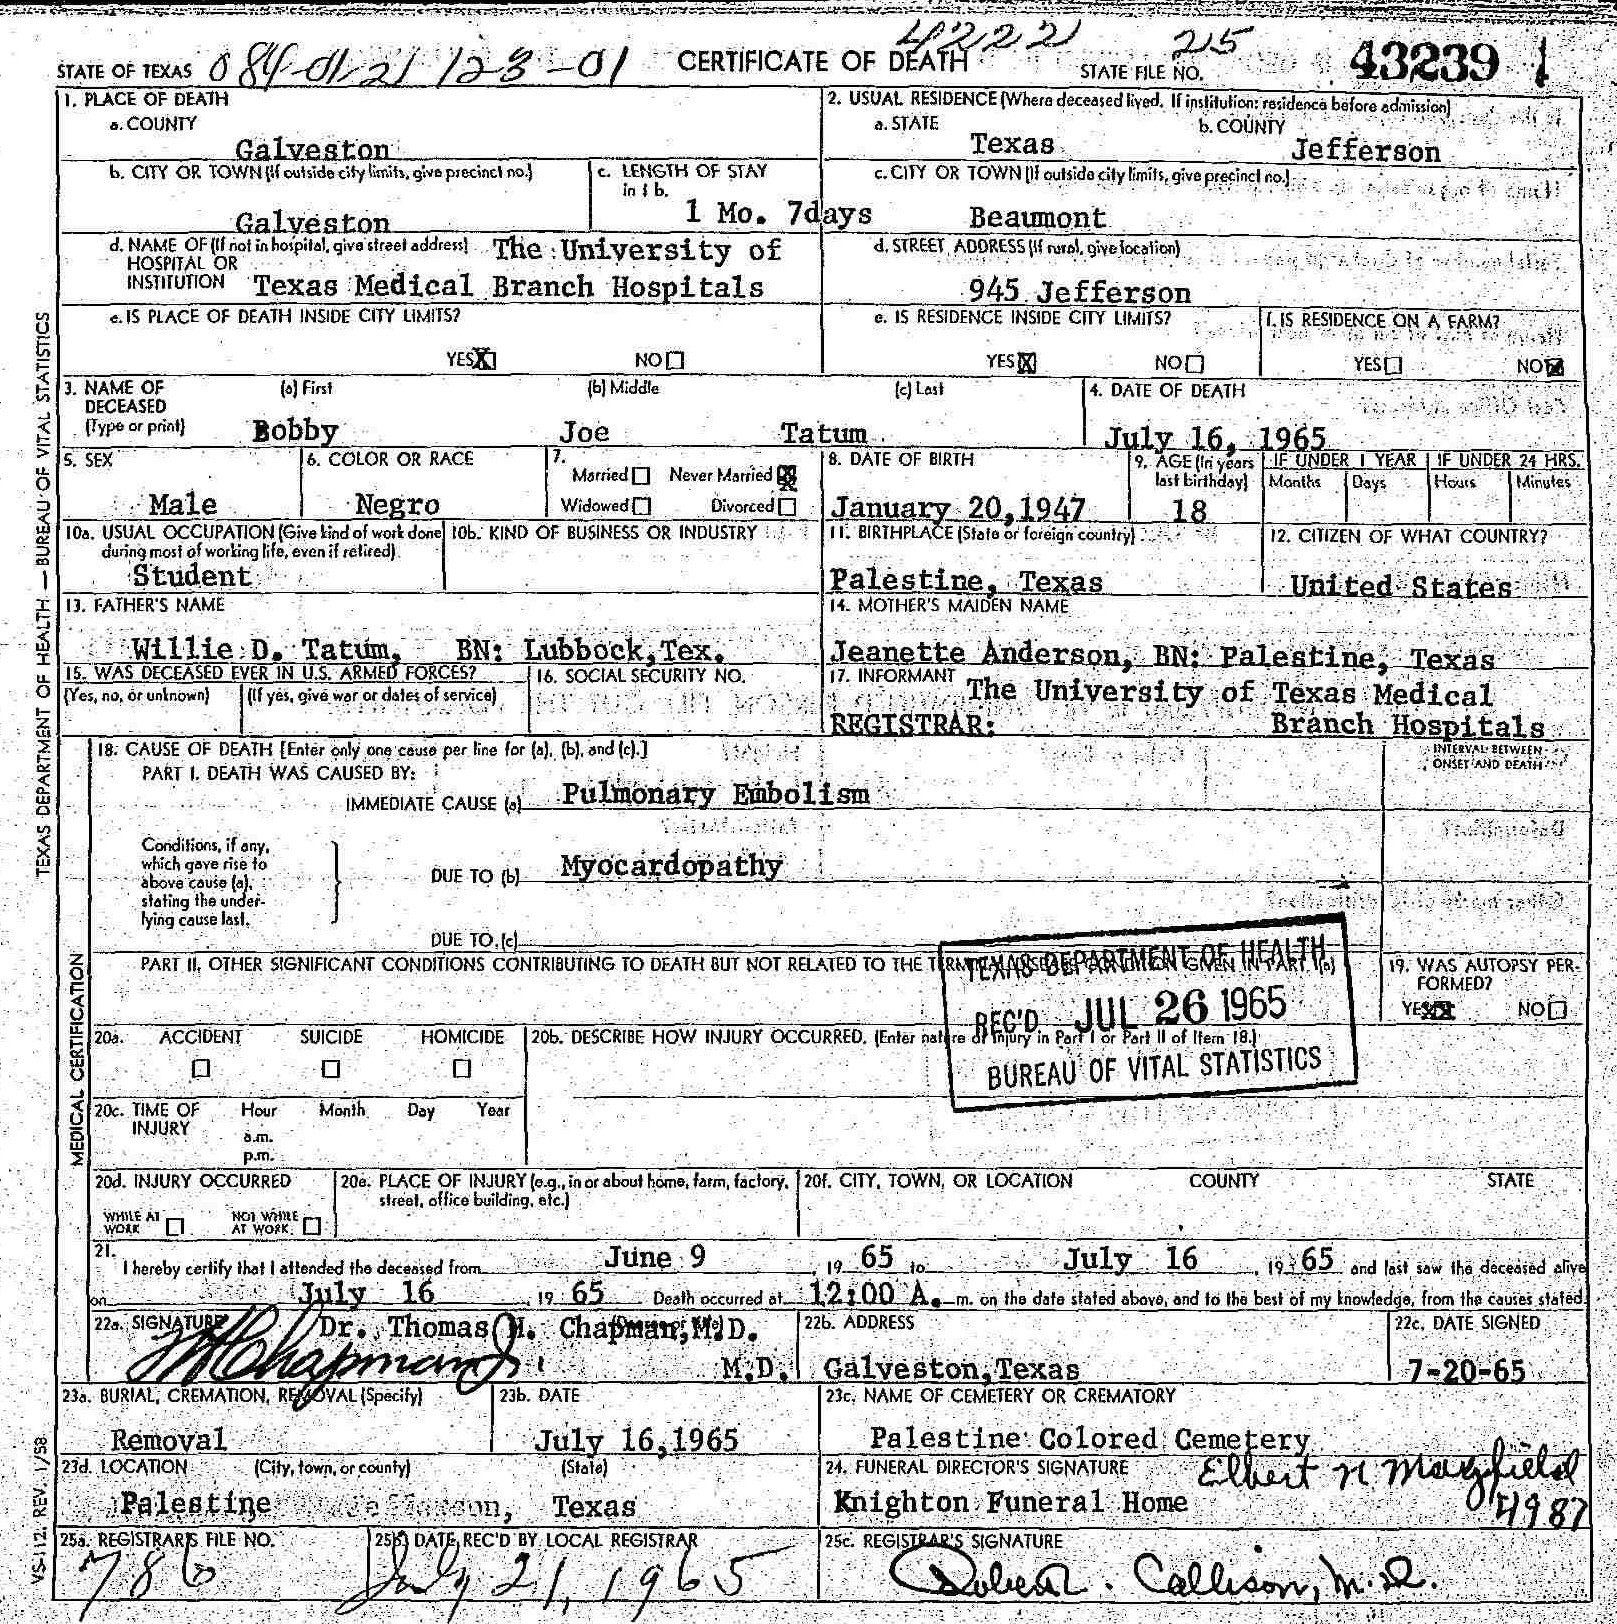 STATE OF TEXAS 084-01-21 123-01 CERTIFICATE OF DEATH 4222 215 STATE FILE NO. 43239 1
1. PLACE OF DEATH
a. COUNTY
Galveston
2. USUAL RESIDENCE (Where deceased lived. If institution: residence before admission)
a. STATE
Texas
b. COUNTY
Jefferson
b. CITY OR TOWN (If outside city limits, give precinct no.)
Galveston
c. LENGTH OF STAY in 1 b.
1 Mo. 7days
c. CITY OR TOWN (If outside city limits, give precinct no.)
Beaumont
d. NAME OF (If not in hospital, give street address)
HOSPITAL OR
INSTITUTION
The University of
Texas Medical Branch Hospitals
d. STREET ADDRESS (If rural, give location)
945 Jefferson
e. IS PLACE OF DEATH INSIDE CITY LIMITS?
YES X NO
e. IS RESIDENCE INSIDE CITY LIMITS?
YES X NO
f. IS RESIDENCE ON A FARM?
YES NO X
3. NAME OF
DECEASED
(Type or print)
(a) First (b) Middle (c) Last
Bobby Joe Tatum
4. DATE OF DEATH
July 16, 1965
5. SEX
Male
6. COLOR OR RACE
Negro
7.
Married Never Married X
Widowed Divorced
8. DATE OF BIRTH
January 20,1947
9. AGE (In years last birthday)
18
IF UNDER 1 YEAR
Months Days
IF UNDER 24 HRS.
Hours Minutes
10a. USUAL OCCUPATION (Give kind of work done
during most of working life, even if retired)
Student
10b. KIND OF BUSINESS OR INDUSTRY
11. BIRTHPLACE (State or foreign country)
Palestine, Texas
12. CITIZEN OF WHAT COUNTRY?
United States
13. FATHER'S NAME
Willie D. Tatum, BN: Lubbock,Tex.
14. MOTHER'S MAIDEN NAME
Jeanette Anderson, BN: Palestine, Texas
15. WAS DECEASED EVER IN U.S. ARMED FORCES?
(Yes, no, or unknown) (If yes, give war or dates of service)
16. SOCIAL SECURITY NO.
17. INFORMANT
The University of Texas Medical
REGISTRAR: Branch Hospitals
18. CAUSE OF DEATH [Enter only one cause per line for (a), (b), and (c).]
PART I. DEATH WAS CAUSED BY:
INTERVAL BETWEEN
ONSET AND DEATH
IMMEDIATE CAUSE (a) Pulmonary Embolism
Conditions, if any,
which gave rise to
above cause (a),
stating the under-
lying cause last.
DUE TO (b) Myocardopathy
DUE TO (c)
PART II. OTHER SIGNIFICANT CONDITIONS CONTRIBUTING TO DEATH BUT NOT RELATED TO THE TERMINAL DISEASE CONDITION GIVEN IN PART I(a)
19. WAS AUTOPSY PER-
FORMED?
YES X NO
TEXAS DEPARTMENT OF HEALTH
REC'D JUL 26 1965
BUREAU OF VITAL STATISTICS
20a. ACCIDENT SUICIDE HOMICIDE
20b. DESCRIBE HOW INJURY OCCURRED. (Enter nature of injury in Part I or Part II of Item 18.)
20c. TIME OF
INJURY
Hour Month Day Year
a.m.
p.m.
20d. INJURY OCCURRED
WHILE AT
WORK
NOT WHILE
AT WORK
20e. PLACE OF INJURY (e.g., in or about home, farm, factory,
street, office building, etc.)
20f. CITY, TOWN, OR LOCATION COUNTY STATE
21.
I hereby certify that I attended the deceased from June 9, 19 65 to July 16, 19 65 and last saw the deceased alive
on July 16, 19 65 Death occurred at 12:00 A. m. on the date stated above, and to the best of my knowledge, from the causes stated.
22a. SIGNATURE
Dr. Thomas H. Chapman, M.D.
M.D.
22b. ADDRESS
Galveston,Texas
22c. DATE SIGNED
7-20-65
23a. BURIAL, CREMATION, REMOVAL (Specify)
Removal
23b. DATE
July 16,1965
23c. NAME OF CEMETERY OR CREMATORY
Palestine Colored Cemetery
23d. LOCATION (City, town, or county) (State)
Palestine Texas
24. FUNERAL DIRECTOR'S SIGNATURE
Elbert N Mayfield
Knighton Funeral Home
4987
25a. REGISTRAR'S FILE NO.
786
25b. DATE REC'D BY LOCAL REGISTRAR
July 21, 1965
25c. REGISTRAR'S SIGNATURE
Robert . Callison, M.D.
TEXAS DEPARTMENT OF HEALTH — BUREAU OF VITAL STATISTICS
MEDICAL CERTIFICATION
VS-112. REV. 1/58